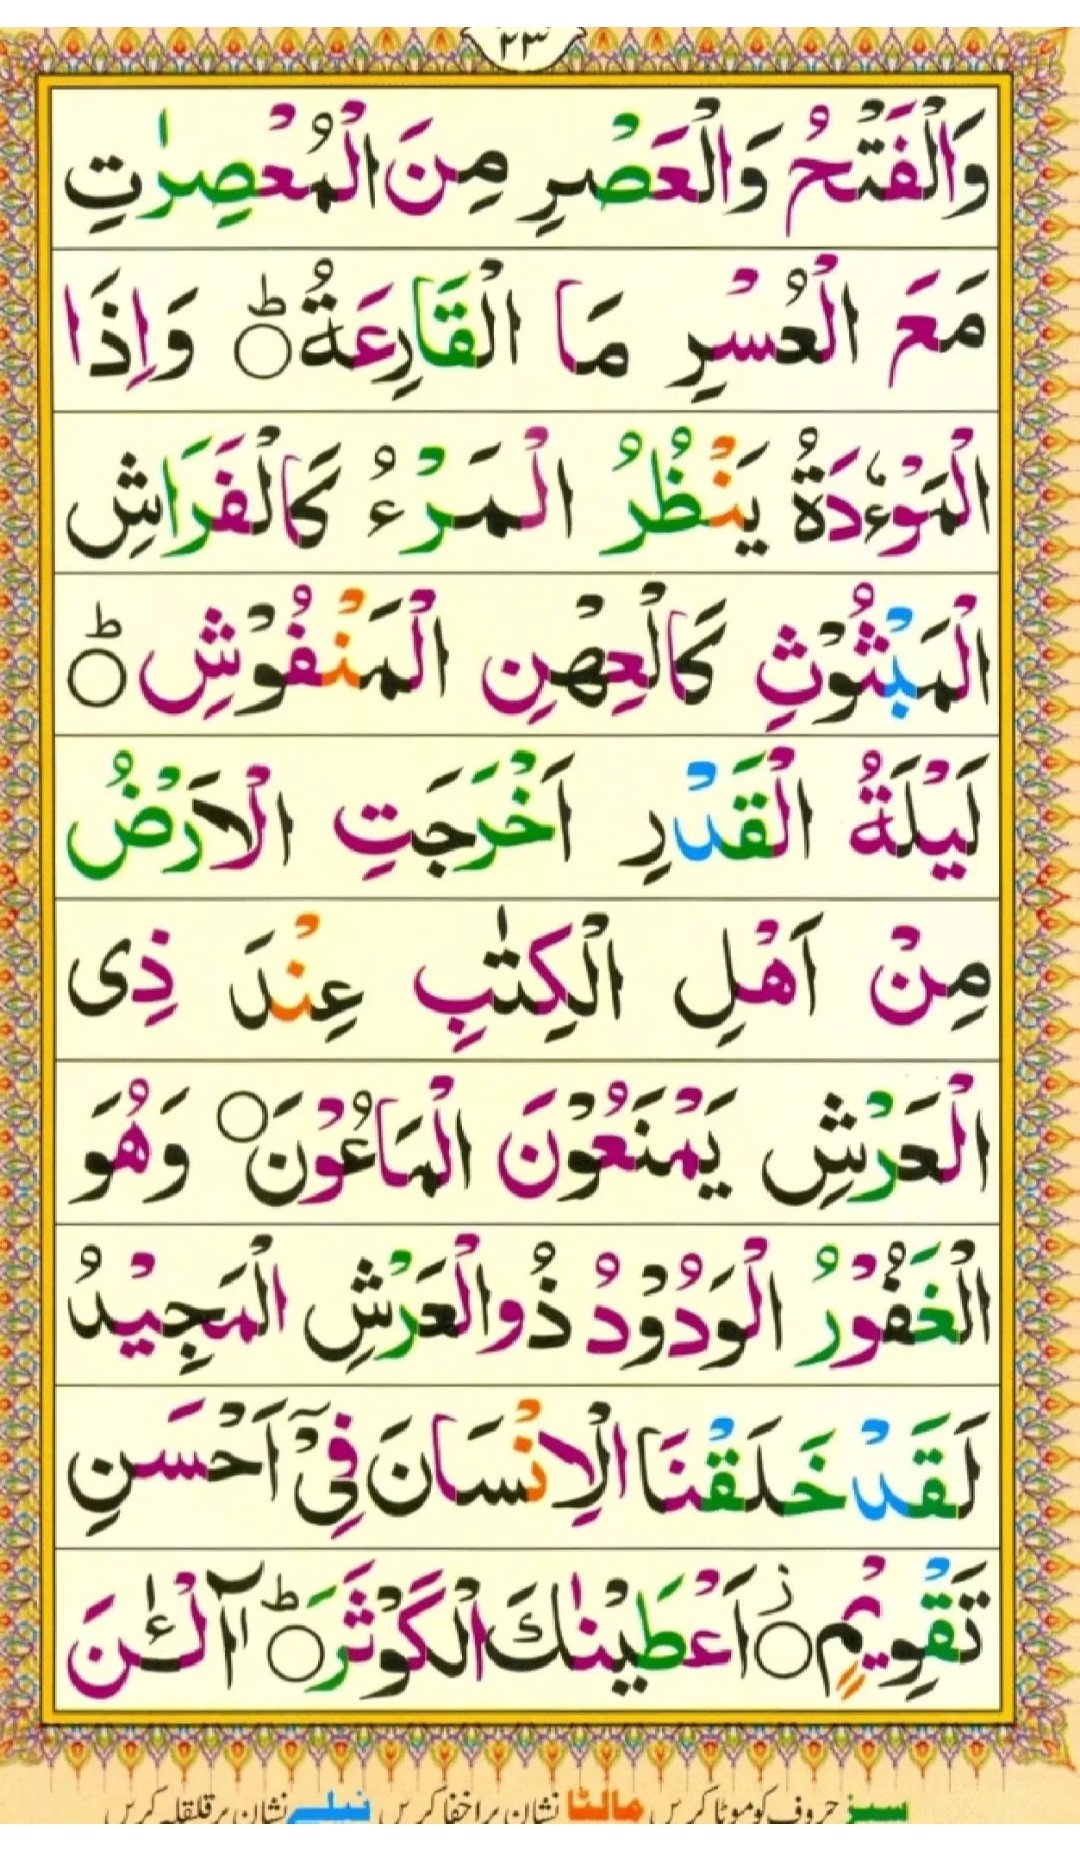 ٢٣
وَالْفَتْحُ وَالْعَصْرِ مِنَ الْمُعْصِرٰتِ
مَعَ الْعُسْرِ مَا الْقَارِعَةُ ؕ وَاِذَا
الْمَوْءٗدَةُ يَنْظُرُ الْمَرْءُ كَالْفَرَاشِ
الْمَبْثُوْثِ كَالْعِهْنِ الْمَنْفُوْشِ ؕ
لَيْلَةُ الْقَدْرِ اَخْرَجَتِ الْاَرْضُ
مِنْ اَهْلِ الْكِتٰبِ عِنْدَ ذِی
الْعَرْشِ يَمْنَعُوْنَ الْمَاعُوْنَ ۝ وَهُوَ
الْغَفُوْرُ الْوَدُوْدُ ذُوالْعَرْشِ الْمَجِيْدُ
لَقَدْ خَلَقْنَا الْاِنْسَانَ فِیْۤ اَحْسَنِ
تَقْوِيْمٍ ۝ز اَعْطَيْنٰكَ الْكَوْثَرَ ؕ آلْـٰٔنَ
سبز حروف کو موٹا کریں مالٹا نشان پر اخفا کریں نیلے نشان پر قلقلہ کریں